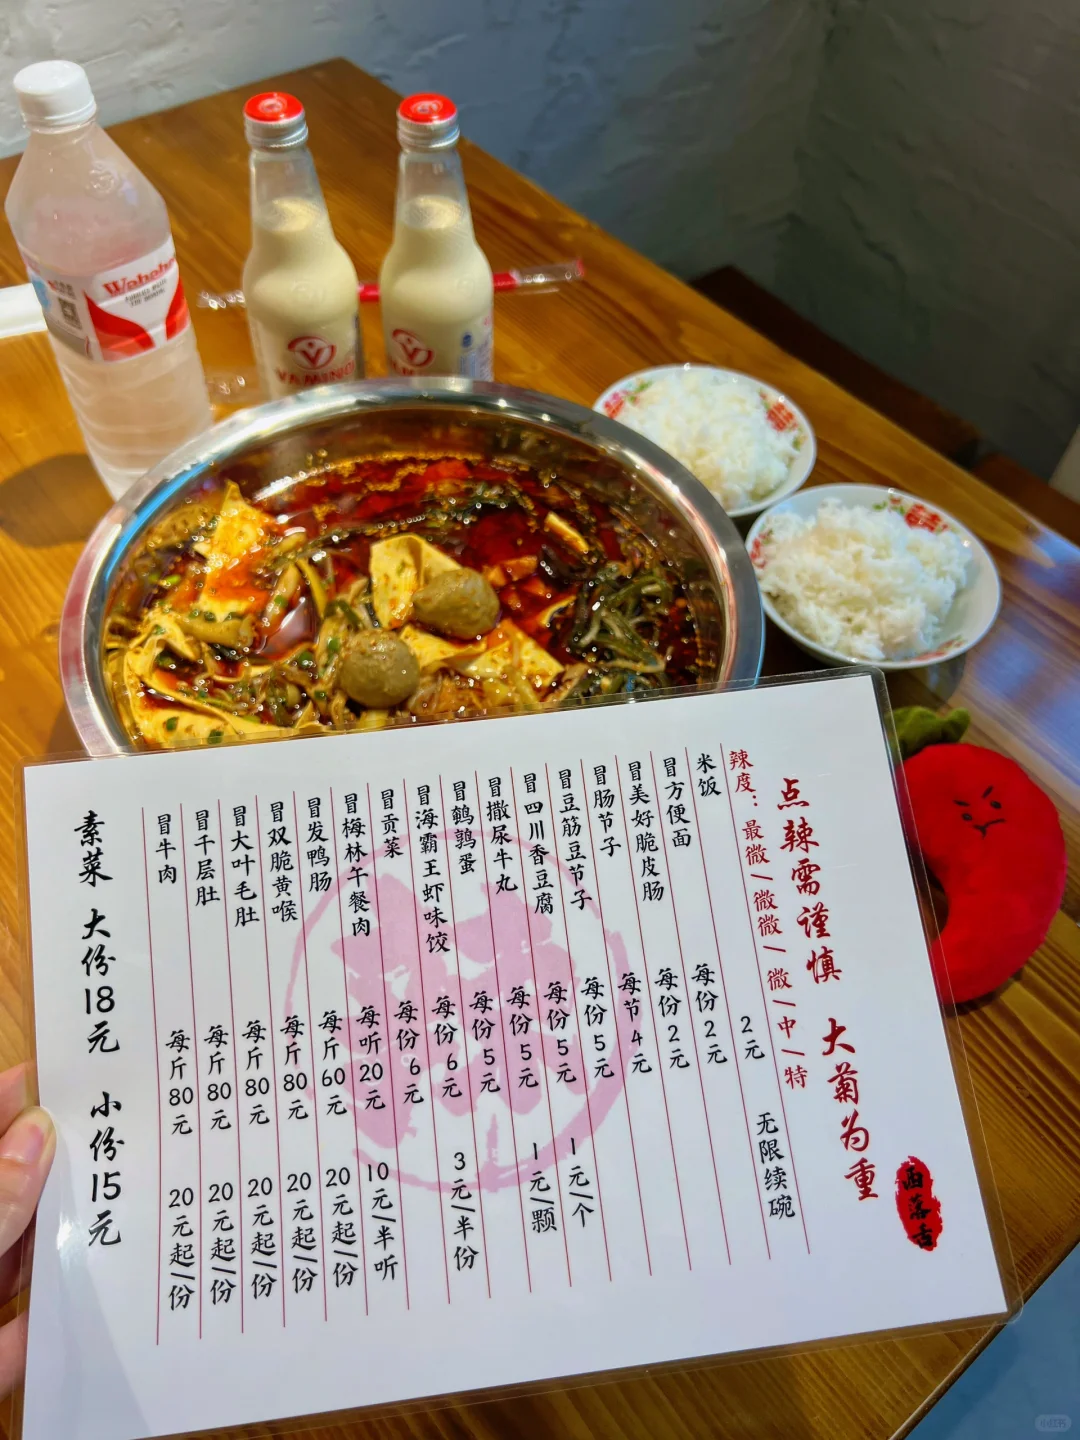 Wahaha
VAMINO
点辣需谨慎 大菊为重
西落吉
辣度：最微/微微/微/中/特
米饭 2元 无限续碗
冒方便面 每份2元
冒美好脆皮肠 每份2元
冒肠节子 每节4元
冒豆筋豆节子 每份5元
冒四川香豆腐 每份5元 1元/个
冒撒尿牛丸 每份5元 1元/颗
冒鹌鹑蛋 每份5元
冒海霸王虾味饺 每份6元 3元/半份
冒贡菜 每份6元
冒梅林午餐肉 每听20元 10元/半听
冒发鸭肠 每斤60元 20元起/份
冒双脆黄喉 每斤80元 20元起/份
冒大叶毛肚 每斤80元 20元起/份
冒千层肚 每斤80元 20元起/份
冒牛肉 每斤80元 20元起/份
素菜 大份18元 小份15元
小红书